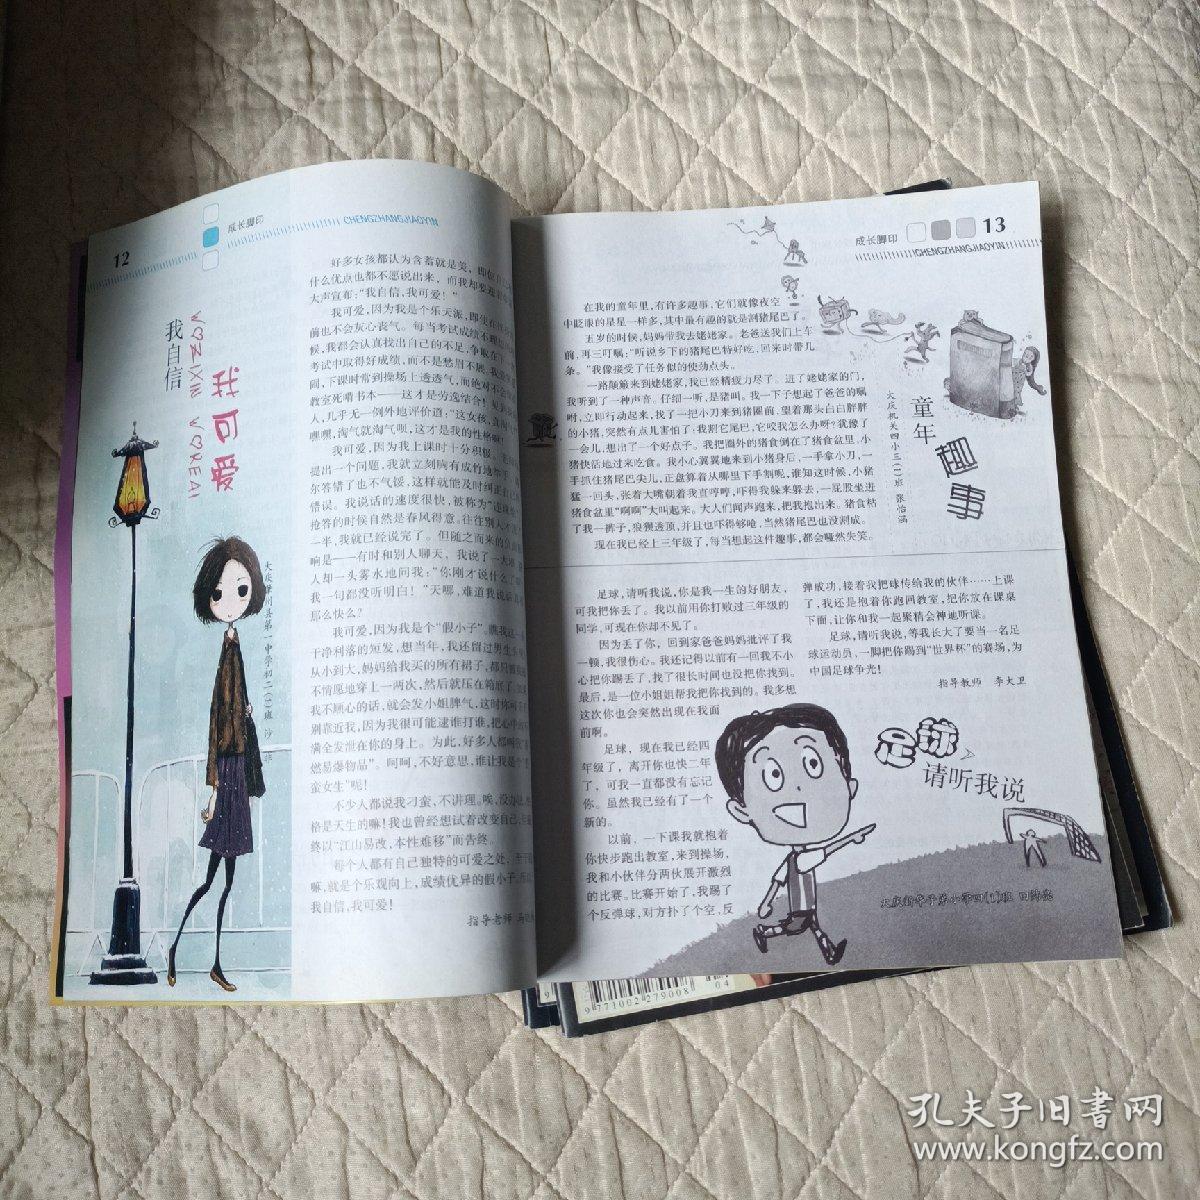 12
成长脚印
CHENGZHANGJIAOYIN
我自信
WOZIXIN WOKEAI
我可爱
好多女孩都认为含蓄就是美,即使自
什么优点也都不愿说出来,而我却要
大声宣布:“我自信,我可爱!”
我可爱,因为我是个乐天派,即使在
前也不会灰心丧气。每当考试成绩不理
候,我都会认真找出自己的不足,争取在
考试中取得好成绩,而不是愁眉不展。
圆,下课时常到操场上透透气,而绝对不会
教室死啃书本——这才是劳逸结合!
人,几乎无一例外地评价道:“这女孩,真
嘿嘿,淘气就淘气呗,这才是我的性格
我可爱,因为我上课时十分积极。
提出一个问题,我就立刻胸有成竹地举手
尔答错了也不气馁,这样就能及时纠正
错误。我说话的速度很快,被称为“
抢答的时候自然是春风得意。往往别人才
一半,我就已经说完了。但随之而来的负面影
响是——有时和别人聊天,我说了一大堆
人却一头雾水地问我:“你刚才说什么了
我一句都没听明白!”天哪,难道我说话
那么快么?
我可爱,因为我是个“假小子”。瞧我这一
干净利落的短发,想当年,我还留过男生
从小到大,妈妈给我买的所有裙子,都只
不情愿地穿上一两次,然后就压在箱底了。
我不顺心的话,就会发小姐脾气,这时你
别靠近我,因为我很可能逮谁打谁,把心中的
满全发泄在你的身上。为此,好多人都叫我“
燃易爆物品”。呵呵,不好意思,谁让我是个“
蛮女生”呢!
不少人都说我刁蛮,不讲理。唉,没办法,
格是天生的嘛!我也曾经想试着改变自己,
终以“江山易改,本性难移”而告终。
每个人都有自己独特的可爱之处,
嘛,就是个乐观向上,成绩优异的假小子。
我自信,我可爱!
指导老师
13
成长脚印
CHENGZHANGJIAOYIN
在我的童年里,有许多趣事,它们就像夜空
中眨眼的星星一样多,其中最有趣的就是割猪尾巴了。
五岁的时候,妈妈带我去姥姥家。老爸送我们上车
前,再三叮嘱:“听说乡下的猪尾巴特好吃,回来时带几
条。”我像接受了任务似的使劲点头。
一路颠簸来到姥姥家,我已经精疲力尽了。进了姥姥家的门,
我听到了一种声音。仔细一听,是猪叫。我一下子想起了爸爸的嘱
咐,立即行动起来,找了一把小刀来到猪圈前,望着那头白白胖胖
的小猪,突然有点儿害怕了:我割它尾巴,它咬我怎么办呀?犹豫了
一会儿,想出了一个好点子。我把圈外的猪食倒在了猪食盆里,小
猪快活地过来吃食。我小心翼翼地来到小猪身后,一手拿小刀,一
手抓住猪尾巴尖儿,正盘算着从哪里下手割呢,谁知这时候,小猪
猛一回头,张着大嘴朝着我直哼哼,吓得我躲来躲去,一屁股坐进
猪食盆里“啊啊”大叫起来。大人们闻声跑来,把我抱出来。猪食粘
了我一裤子,狼狈透顶,并且也吓得够呛,当然猪尾巴也没割成。
现在我已经上三年级了,每当想起这件趣事,都会哑然失笑。
童年
趣事
大庆机关四小三(1)班 张怡涵
足球,请听我说,你是我一生的好朋友,
可我把你丢了。我以前用你打败过三年级的
同学,可现在你却不见了。
因为丢了你,回到家爸爸妈妈批评了我
一顿,我很伤心。我还记得以前有一回我不小
心把你踢丢了,找了很长时间也没把你找到。
最后,是一位小姐姐帮我把你找到的。我多想
这次你也会突然出现在我面
前啊。
足球,现在我已经四
年级了,离开你也快二年
了,可我一直都没有忘记
你。虽然我已经有了一个
新的。
以前,一下课我就抱着
你快步跑出教室,来到操场,
我和小伙伴分两伙展开激烈
的比赛。比赛开始了,我踢了
个反弹球,对方扑了个空,反
弹成功,接着我把球传给我的伙伴……上课
了,我还是抱着你跑回教室,把你放在课桌
下面,让你和我一起聚精会神地听课。
足球,请听我说,等我长大了要当一名足
球运动员,一脚把你踢到“世界杯”的赛场,为
中国足球争光!
指导教师 李大卫
足球
请听我说
9 771002 279008
04
孔夫子旧書网
www.kongfz.com